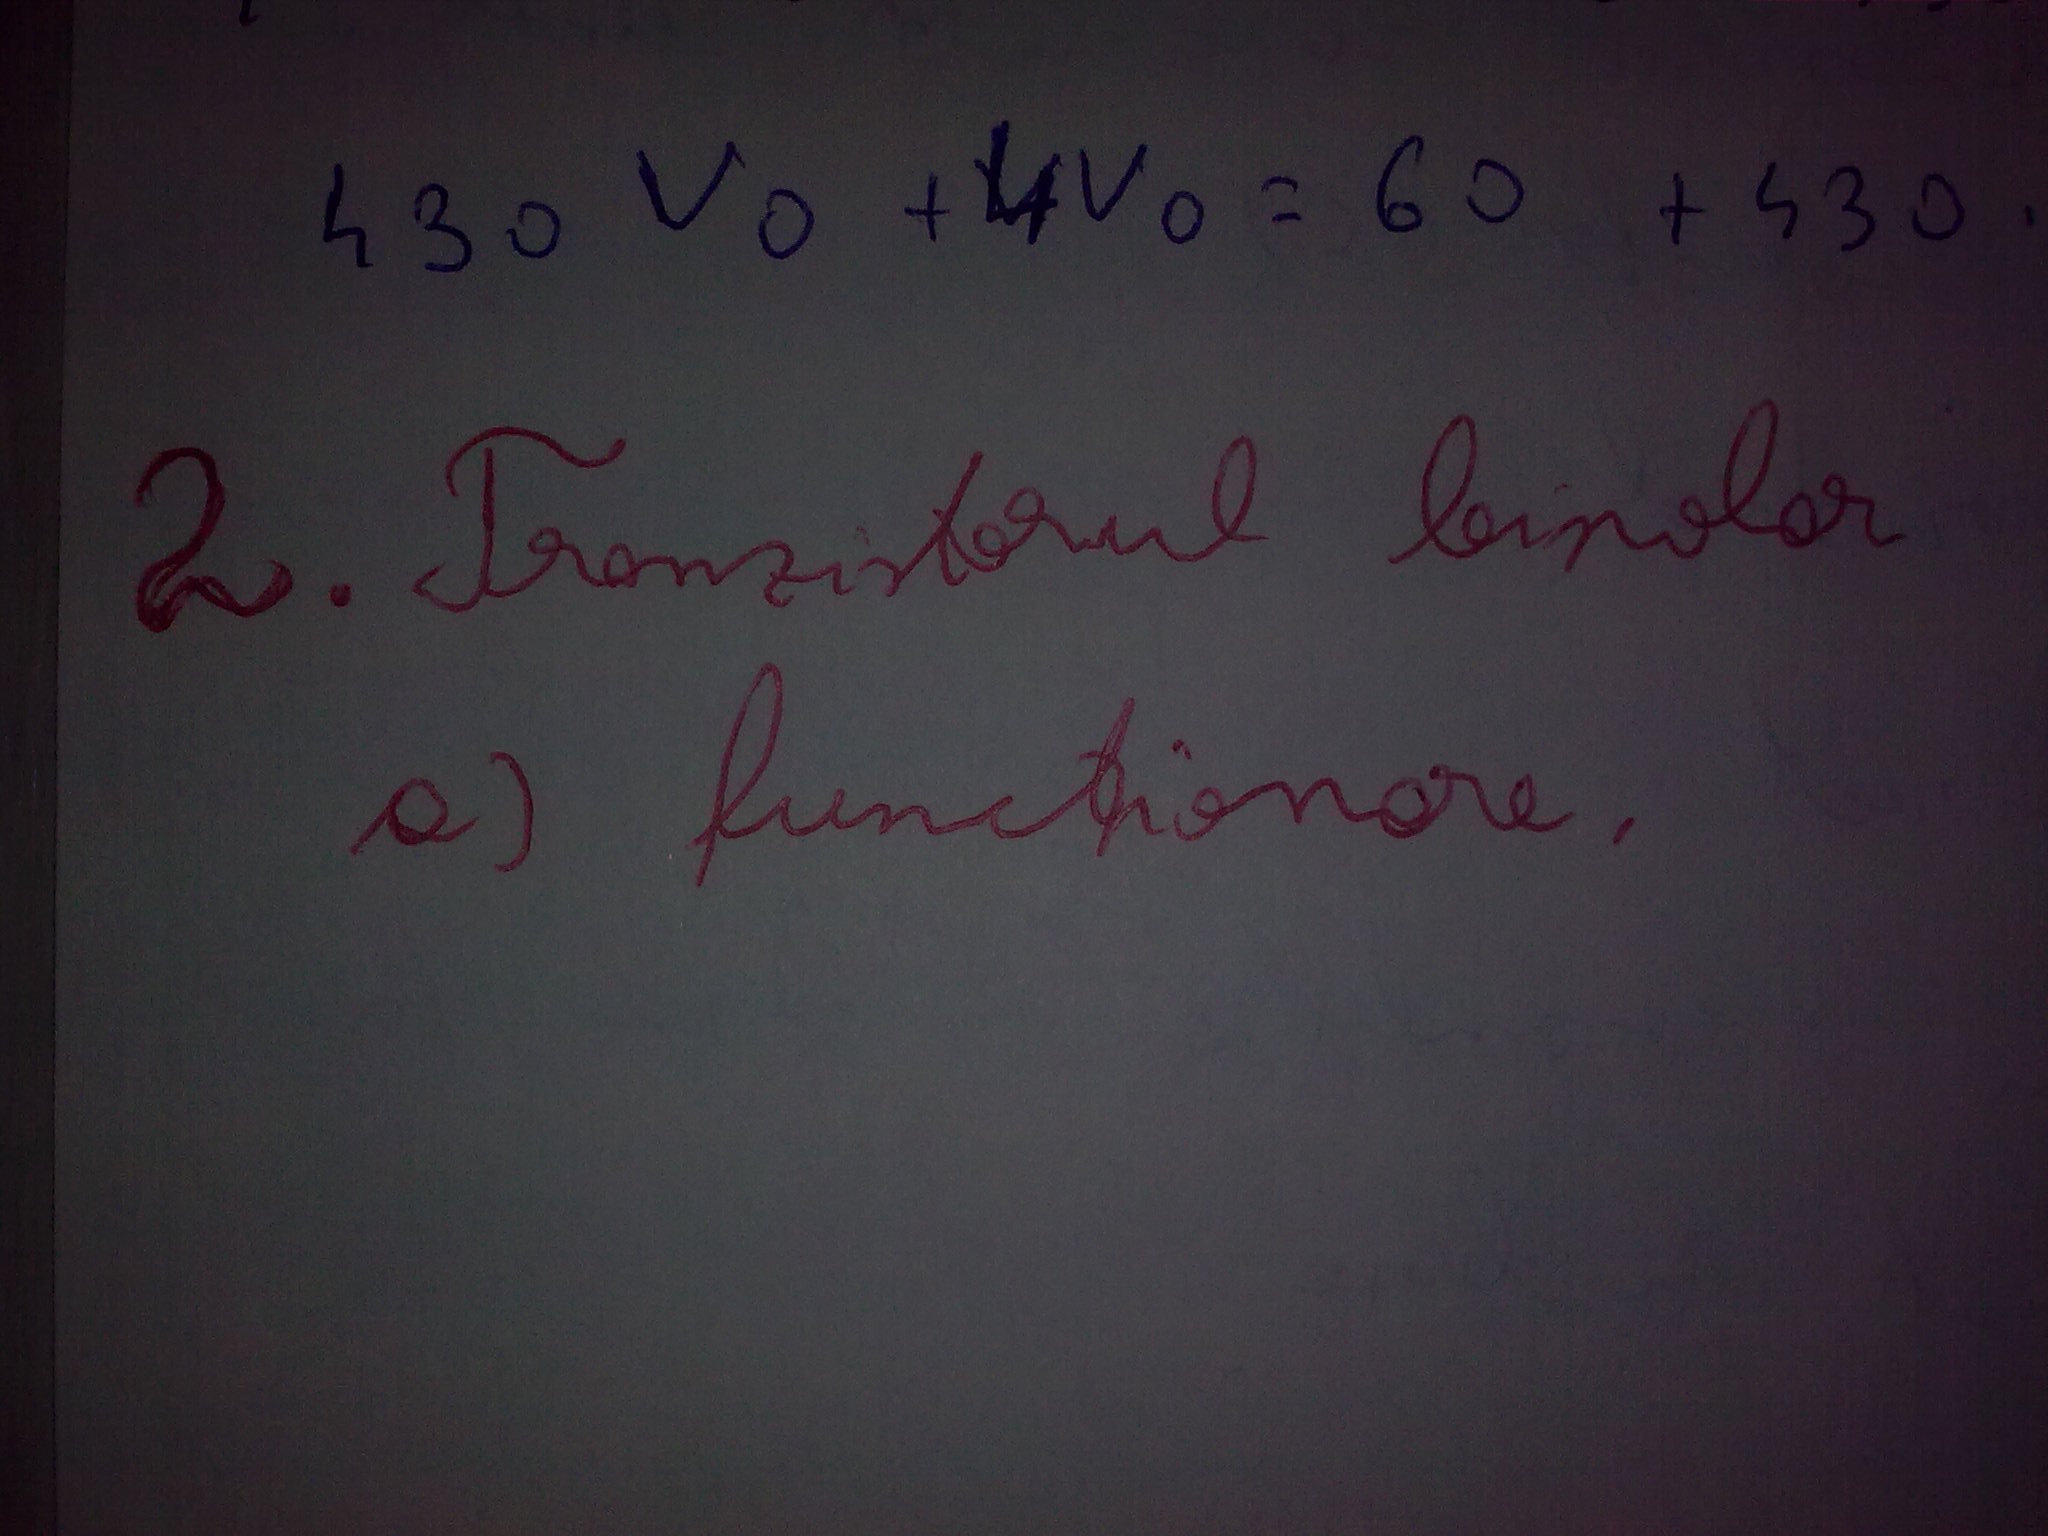 430 V0 + 4V0 = 60 + 430.
2. Tranzistorul bipolar
a) funcționare.